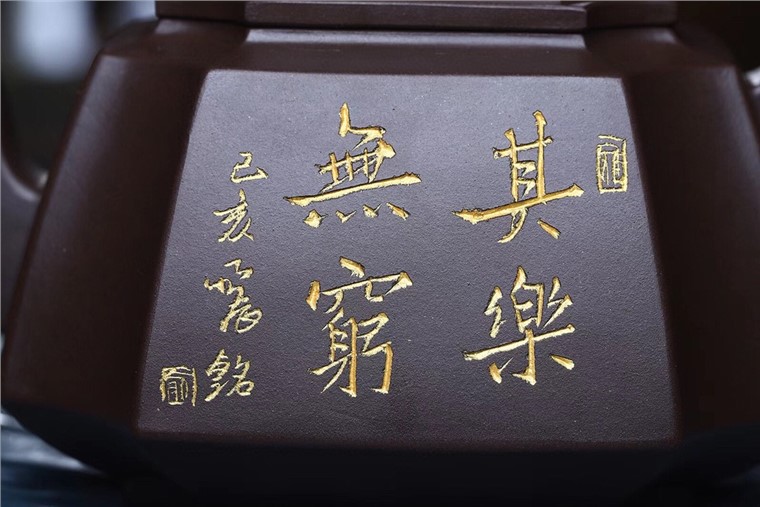 其樂
無窮
己亥
銘